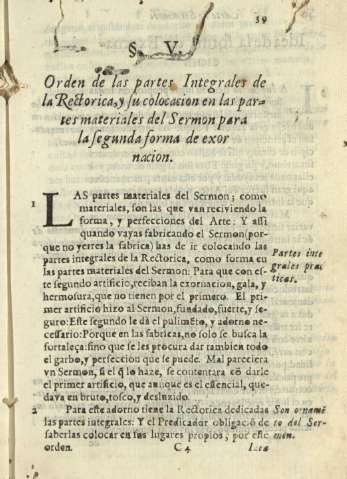 39
§. V.
Orden de las partes Integrales de
la Rectorica, y su colocacion en las par-
tes materiales del Sermon para
la segunda forma de exor
nacion.
1
LAS partes materiales del Sermon; como
materiales, son las que van reciviendo la
forma, y perfecciones del Arte: Y assi
quando vayas fabricando el Sermon (por-
que no yerres la fabrica) has de ir colocando las
partes integrales de la Rectorica, como forma en
las partes materiales del Sermon: Para que con es-
te segundo artificio, reciban la exornacion, gala, y
hermosura, que no tienen por el primero. El pri-
mer artificio hizo al Sermon, fundado, fuerte, y se-
guro: Este segundo le dà el pulimẽto, y adorno ne-
cessario: Porque en las fabricas, no solo se busca la
fortaleça: sino que se les procura dar tambien todo
el garbo, y perfeccion que se puede. Mal pareciera
vn Sermon, si el q̃ lo haze, se contentara cõ darle
el primer artificio, que aunque es el essencial, que-
dava en bruto, tosco, y desluzido.
Partes inte
grales prac
ticas.
2
Para este adorno tiene la Rectorica dedicadas
las partes integrales: Y el Predicador obligaciõ de
saberlas colocar en sus lugares propios; por este
orden.
Son ornamẽ
to del Ser-
mon.
C4